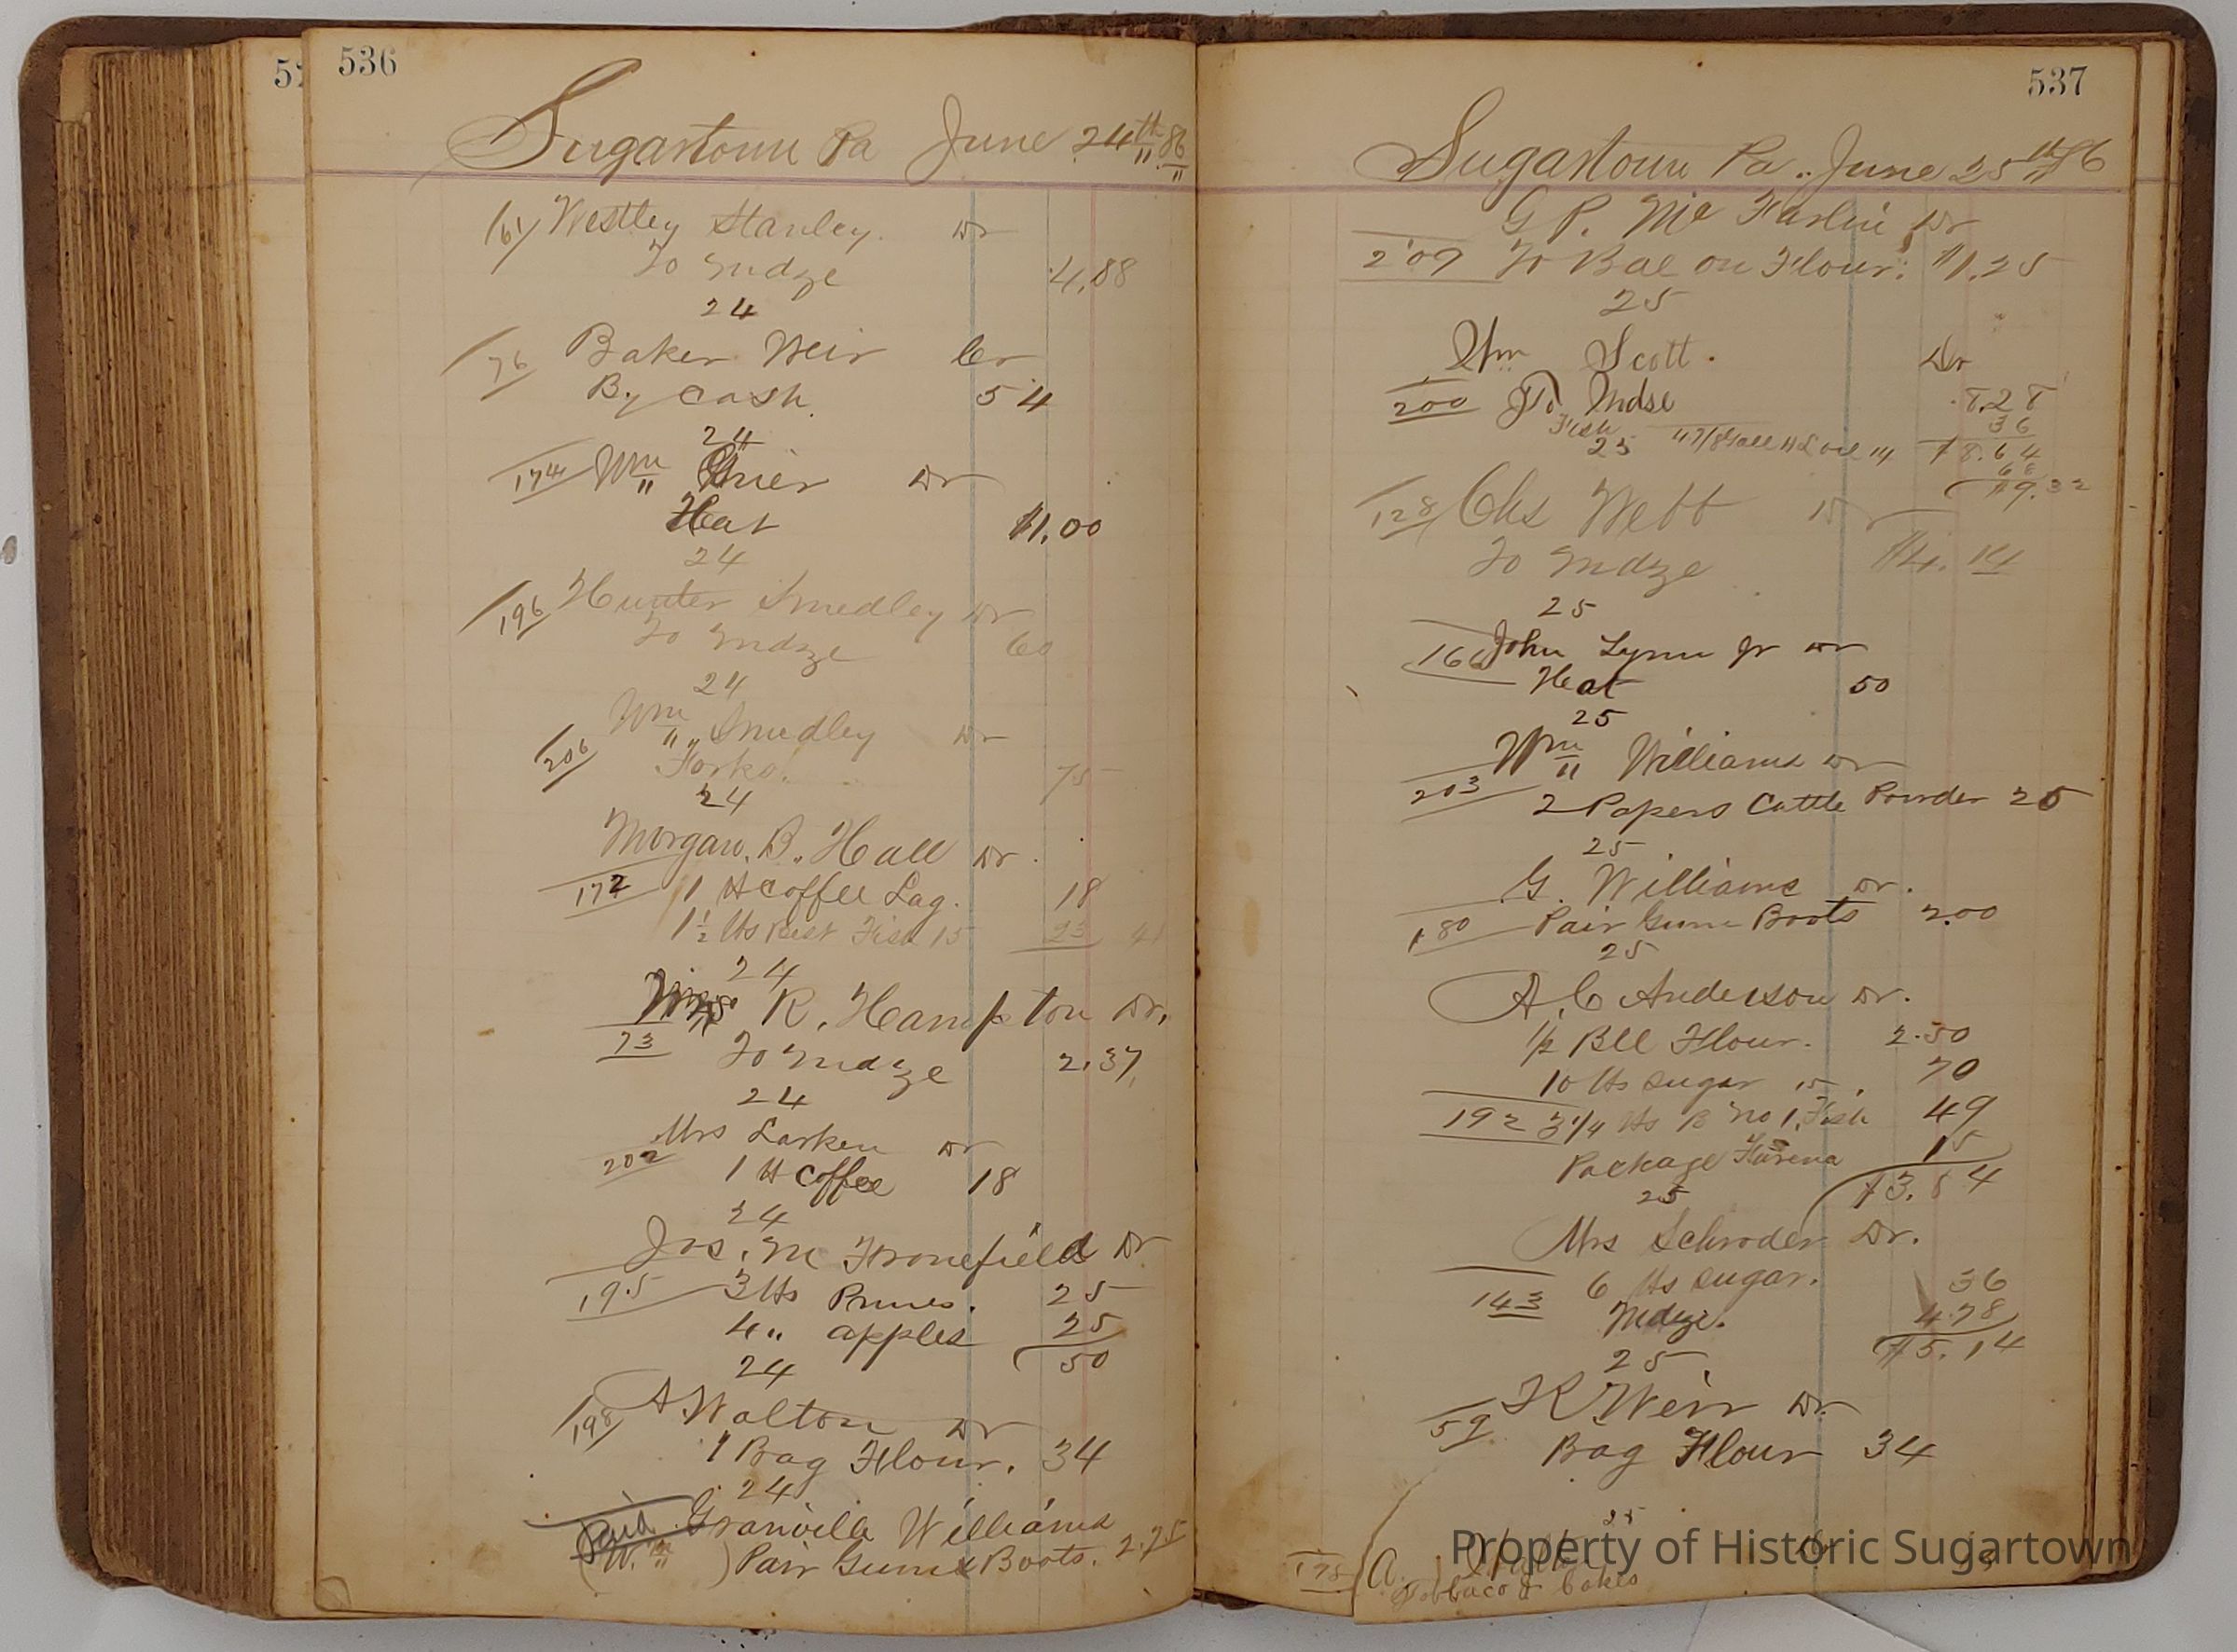 536
Sugartown Pa June 24th 86
161 Westley Stanley. Dr
To Mdze 4.88
24
76 Baker Weir Cr
By Cash. 54
24
174 Wm Grier Dr
Hat $1.00
24
196 Hunter Smedley Dr
To Mdze 60
24
Wm Smedley Dr
206 Forks. 75
24
Morgan. B. Hall Dr.
172 1 lb Coffee Lag. 18
1 1/2 lbs Best Fish 15 23 41
24
R. Hampton Dr.
73 To Mdze 2.37
24
Mrs Larken Dr
202 1 lb Coffee 18
24
Jos. M Fronefield Dr
195 3 lbs Prunes. 25
4 " apples 25
50
24
198 A. Walton Dr
1 Bag Flour. 34
24
Paid Granville Williams
Pair Gum Boots. 2.25
537
Sugartown Pa.. June 25th 86
G P. Mc Farlin Dr
209 To Bal on Flour. $1.25
25
Wm Scott. Dr
200 To Mdse 8.28
Fish 36
25 $8.64
68
$9.32
128 Chs Webb Dr
To Mdze $4.14
25
166 John Lynn Jr Dr
Hat 50
25
Wm Williams Dr
203 2 Papers Cattle Powder 25
25
G. Williams Dr.
180 Pair Gum Boots 2.00
25
A. C Anderson Dr.
1/2 Bll Flour. 2.50
10 lbs sugar 15. 70
192 3 1/4 lbs B No 1. Fish 49
Package Farena 15
25 $3.84
Mrs Schroder Dr.
6 lbs sugar. 36
143 Mdze. 4.78
$5.14
25
59 K Weir Dr.
Bag Flour 34
25
178 A.
Tobbaco & Cakes
Property of Historic Sugartown